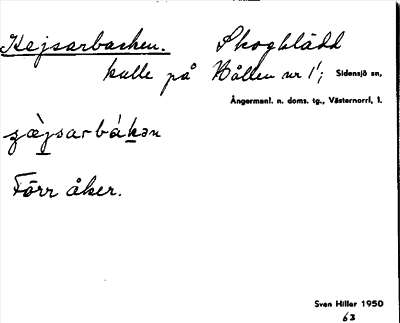 Kejsarbacken. Skogklädd
kulle på Bållen nr 1; Sidensjö sn,
Ångermanl. n. doms. tg., Västernorrl, l.
Förr åker.
Sven Hiller 1950
63